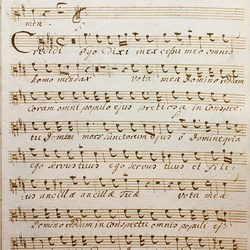 men.
Credidi ego dixi in excessu meo omnis
homo mendax vota mea Domino reddam
coram omni populo ejus pretiosa in conspe
tu Domini mors Sanctorum ejus o Domine quia
ego servus tuus ego servus tuus et fili
us ancillæ ancillæ tuæ vota mea
Domino reddam in conspectu omnis populi ejus